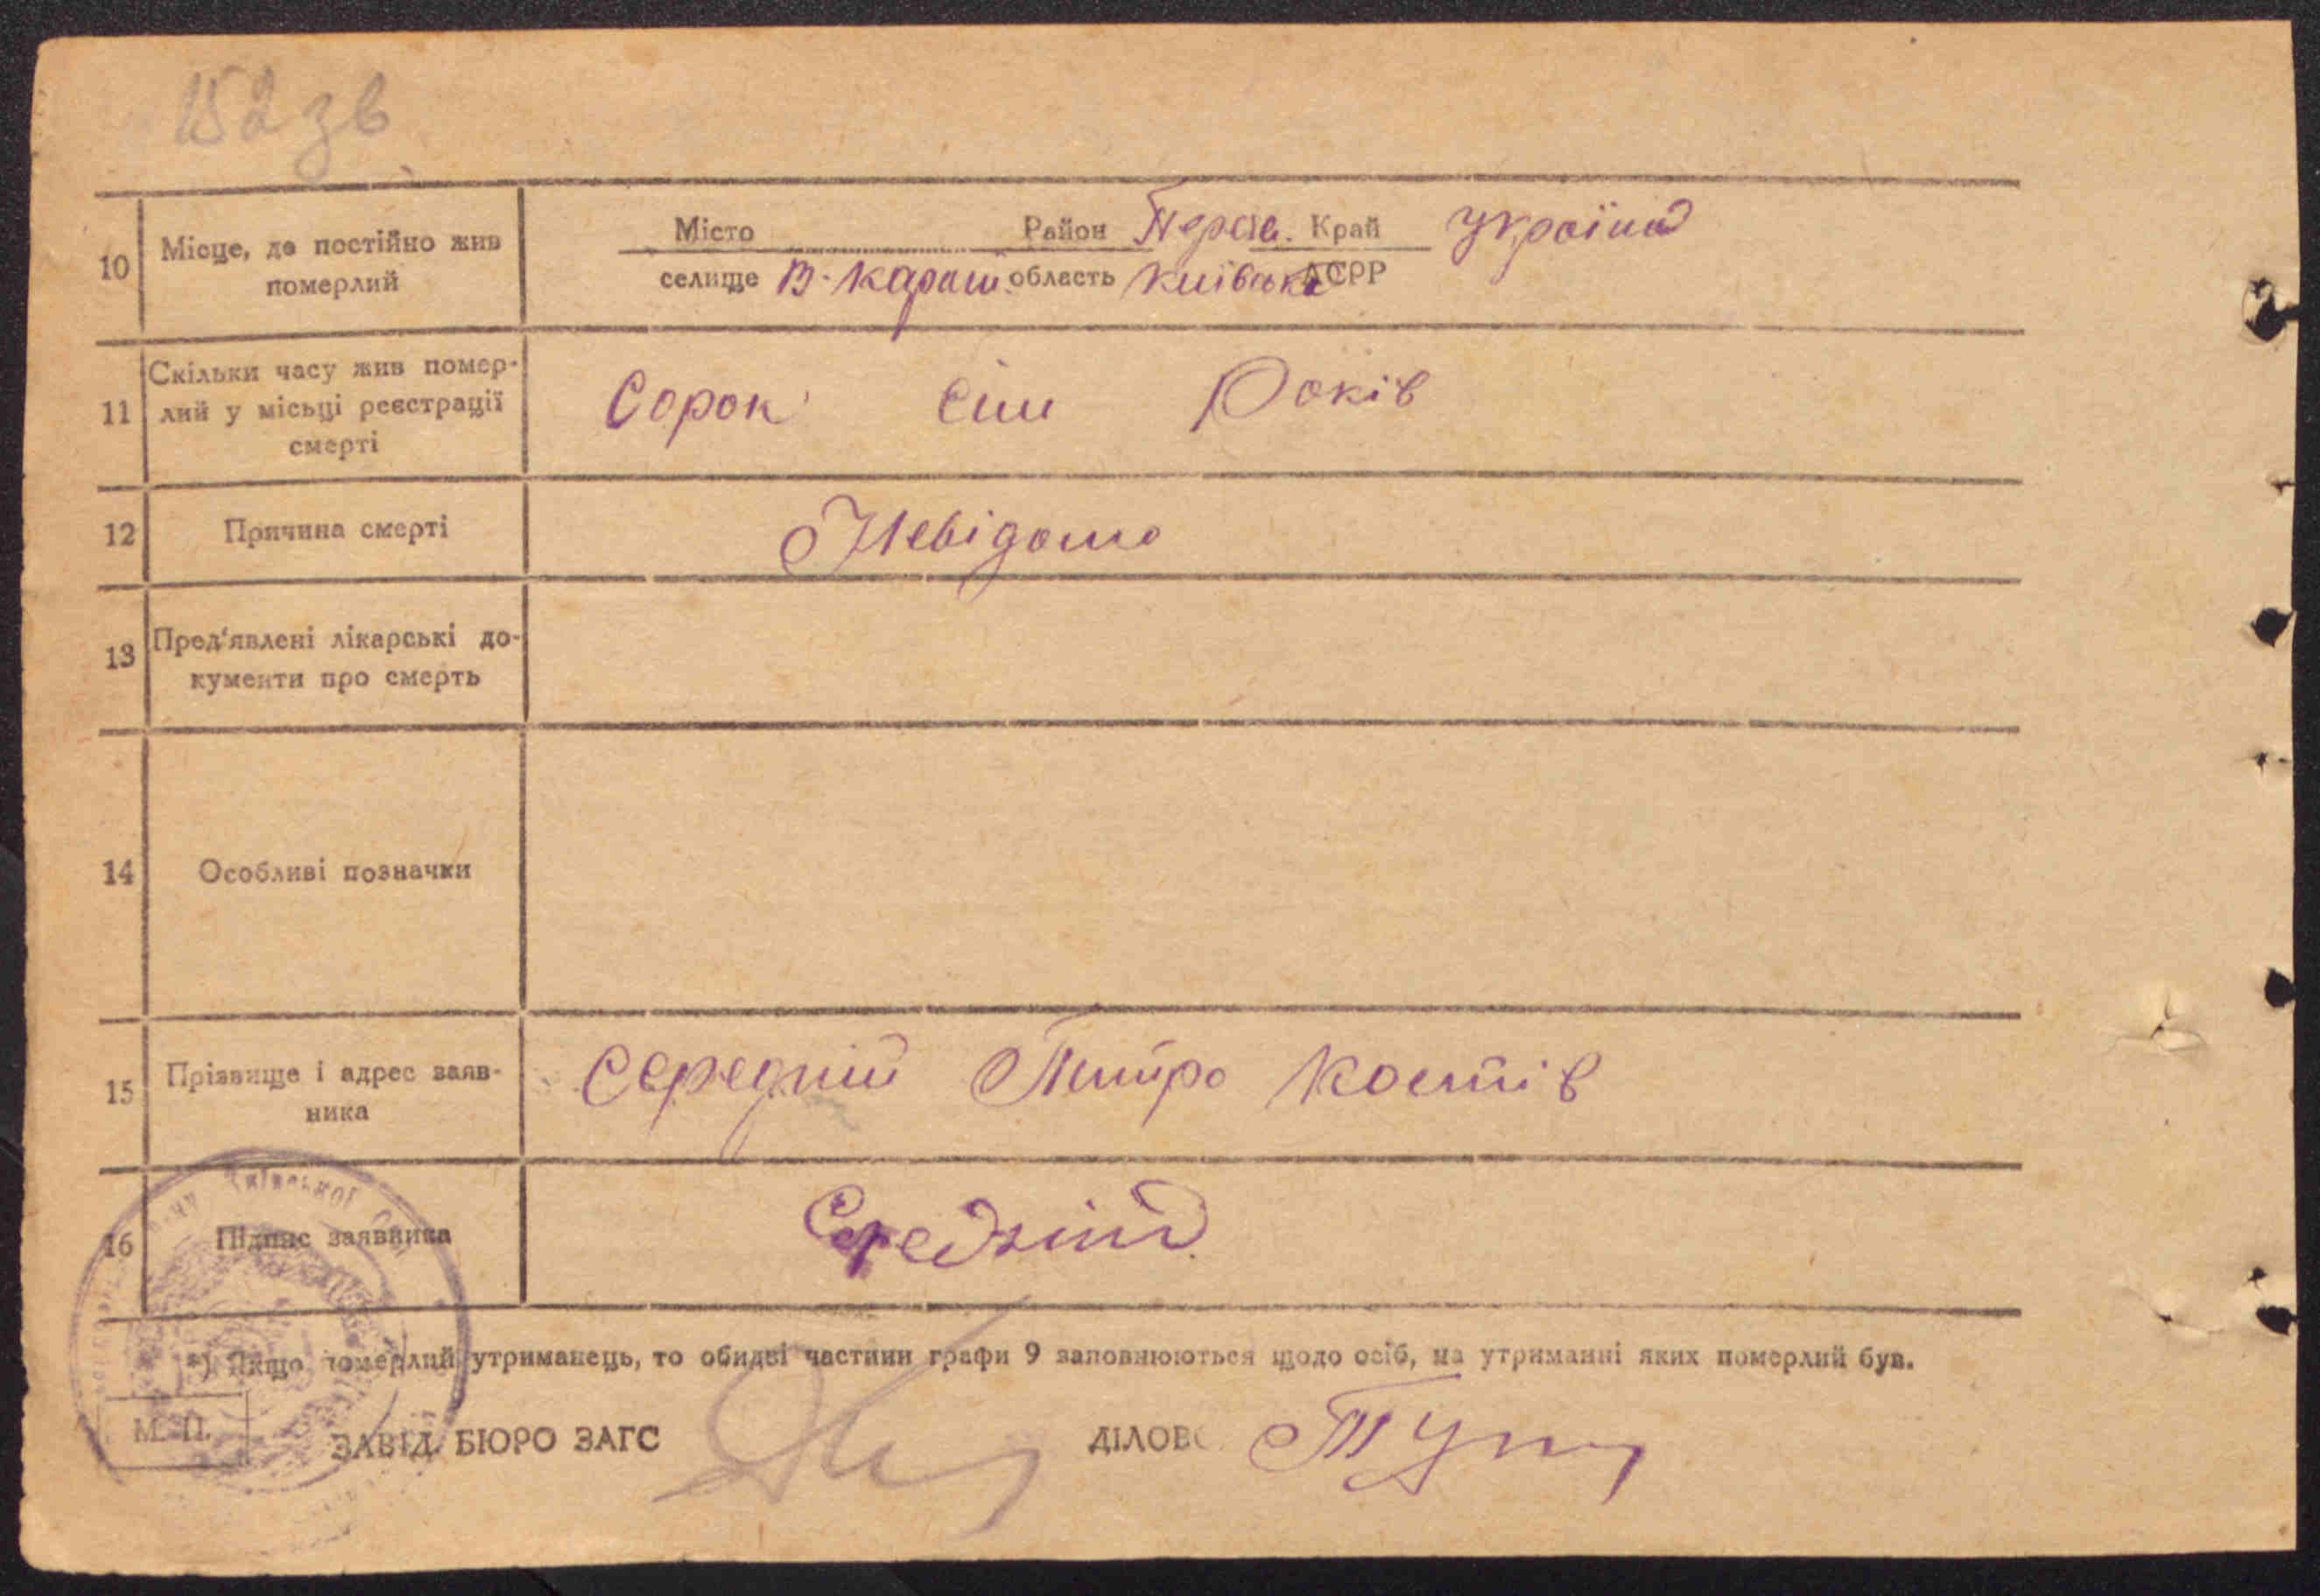 152 зв
10 Місце, де постійно жив померлий
Місто Район Переяс. Край Україна
селище В-Караш. область Київська АСРР
11 Скільки часу жив помер-
лий у місьці реєстрації
смерті
Сорок сім Років
12 Причина смерті
Невідомо
13 Пред'явлені лікарські до-
кументи про смерть
14 Особливі позначки
15 Прізвище і адрес заяв-
ника
Середній Питро Костів
16 Підпис заявника
Середній
Київської
*) Якщо померлий утриманець, то обидві частини графи 9 заповнюються щодо осіб, на утриманні яких померлий був.
М. П.
ЗАВІД. БЮРО ЗАГС
ДІЛОВ